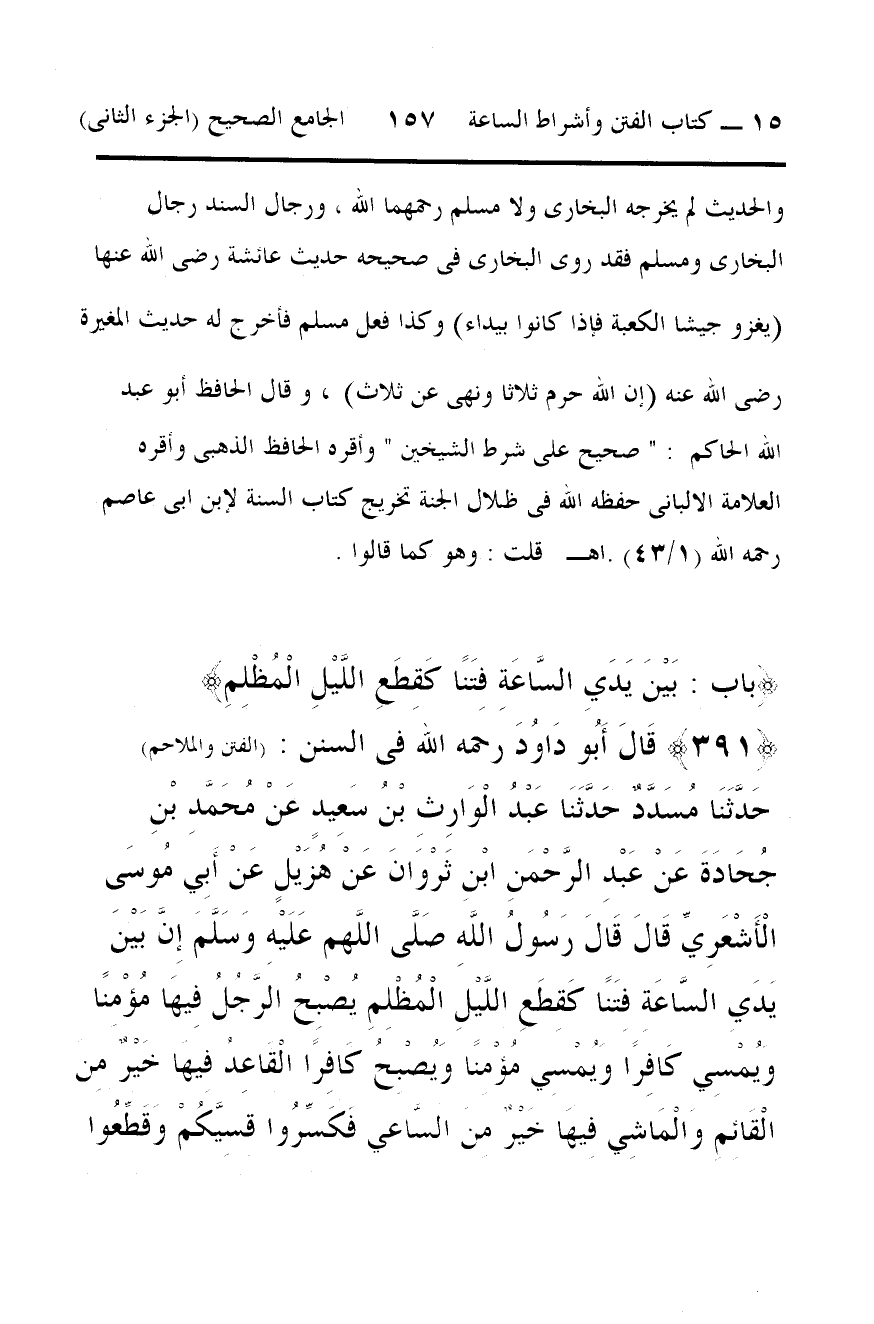 ١٥ ـــ كتاب الفتن وأشراط الساعة ١٥٧ الجامع الصحيح (الجزء الثانى)
والحديث لم يخرجه البخارى ولا مسلم رحمهما الله ، ورجال السند رجال
البخارى ومسلم فقد روى البخارى فى صحيحه حديث عائشة رضى الله عنها
(يغزو جيشا الكعبة فإذا كانوا بيداء) وكذا فعل مسلم فأخرج له حديث المغيرة
رضى الله عنه (إن الله حرم ثلاثا ونهى عن ثلاث) ، و قال الحافظ أبو عبد
الله الحاكم : " صحيح على شرط الشيخين " وأقره الحافظ الذهبى وأقره
العلامة الالبانى حفظه الله فى ظلال الجنة تخريج كتاب السنة لإبن ابى عاصم
رحمه الله (٤٣/١) .اهـــ قلت : وهو كما قالوا .
﴿باب : بَيْنَ يَدَيِ السَّاعَةِ فِتَنًا كَقِطَعِ اللَّيْلِ الْمُظْلِمِ﴾
﴿٣٩١﴾ قَالَ أَبُو دَاوُدَ رحمه الله فى السنن : (الفتن والملاحم)
حَدَّثَنَا مُسَدَّدٌ حَدَّثَنَا عَبْدُ الْوَارِثِ بْنُ سَعِيدٍ عَنْ مُحَمَّدِ بْنِ
جُحَادَةَ عَنْ عَبْدِ الرَّحْمَنِ ابْنِ ثَرْوَانَ عَنْ هُزَيْلٍ عَنْ أَبِي مُوسَى
الْأَشْعَرِيِّ قَالَ قَالَ رَسُولُ اللَّهِ صَلَّى اللهم عَلَيْهِ وَسَلَّمَ إِنَّ بَيْنَ
يَدَيِ السَّاعَةِ فِتَنًا كَقِطَعِ اللَّيْلِ الْمُظْلِمِ يُصْبِحُ الرَّجُلُ فِيهَا مُؤْمِنًا
وَيُمْسِي كَافِرًا وَيُمْسِي مُؤْمِنًا وَيُصْبِحُ كَافِرًا الْقَاعِدُ فِيهَا خَيْرٌ مِنَ
الْقَائِمِ وَالْمَاشِي فِيهَا خَيْرٌ مِنَ السَّاعِي فَكَسِّرُوا قِسِيَّكُمْ وَقَطِّعُوا